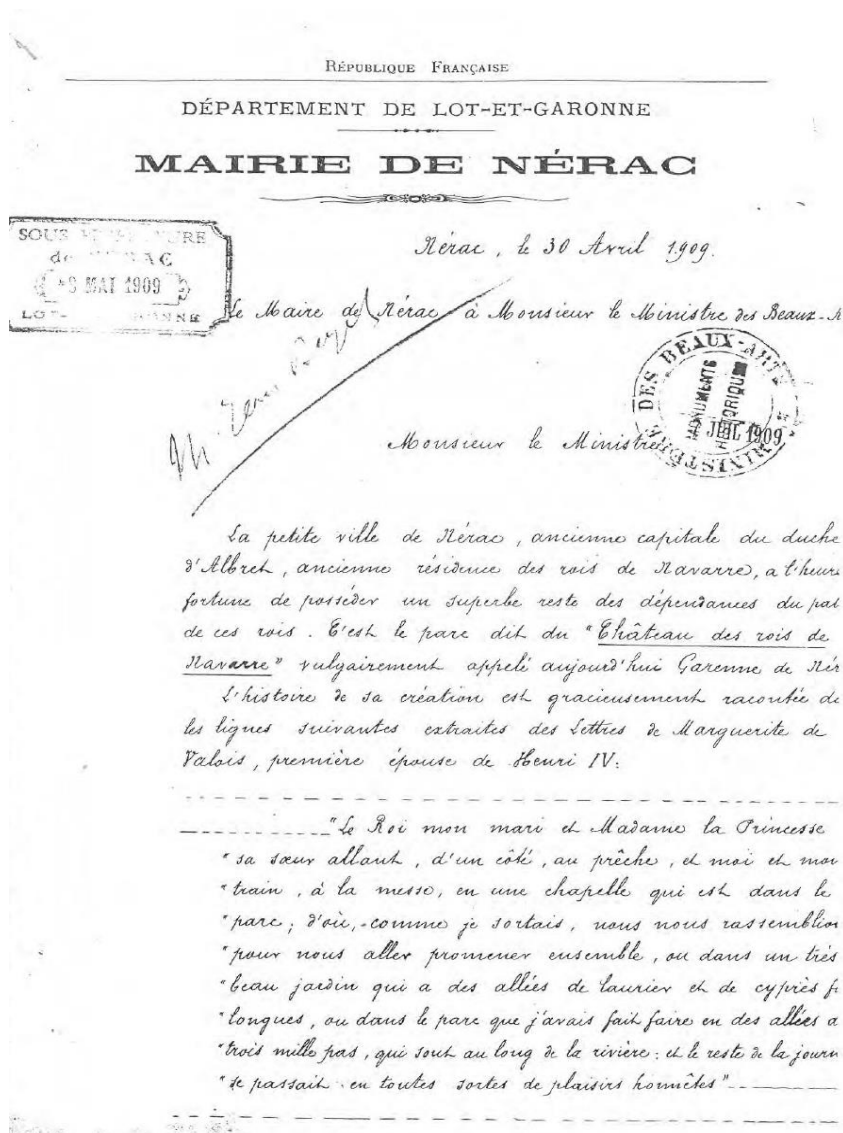 RÉPUBLIQUE FRANÇAISE
DÉPARTEMENT DE LOT-ET-GARONNE
MAIRIE DE NÉRAC
SOUS
de
MAI 1909
LOT-
Nérac, le 30 Avril 1909.
Le Maire de Nérac à Monsieur le Ministre des Beaux-A
MINISTÈRE DES BEAUX-ARTS
MONUMENTS
HISTORIQUES
JUIL 1909
Monsieur le Ministre
La petite ville de Nérac, ancienne capitale du duché
d'Albret, ancienne résidence des rois de Navarre, a l'heure
fortune de posséder un superbe reste des dépendances du pal
de ces rois. C'est le parc dit du "Château des rois de
Navarre" vulgairement appelé aujourd'hui Garenne de Nér
L'histoire de sa création est gracieusement racontée da
les lignes suivantes extraites des Lettres de Marguerite de
Valois, première épouse de Henri IV:
"Le Roi mon mari et Madame la Princesse
"sa sœur allant, d'un côté, au prêche, et moi et mon
"train, à la messe, en une chapelle qui est dans le
"parc; d'où, comme je sortais, nous nous rassemblion
"pour nous aller promener ensemble, ou dans un très
"beau jardin qui a des allées de laurier et de cyprès f
"longues, ou dans le parc que j'avais fait faire en des allées d
"trois mille pas, qui sont au long de la rivière: et le reste de la journ
"se passait en toutes sortes de plaisirs honnêtes"